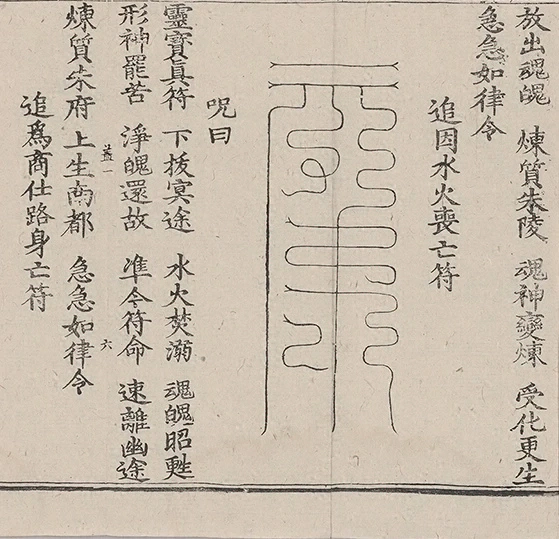 放出魂魄 煉質朱陵 魂神變煉 受化更生
急急如律令
追因水火喪亡符
呪曰
靈寳眞符 下拔冥途 水火焚溺 魂魄昭甦
形神罷苦 淨魄還故 准令符命 速離幽途
蓋一 六
煉質朱府 上生南都 急急如律令
追爲商仕路身亡符